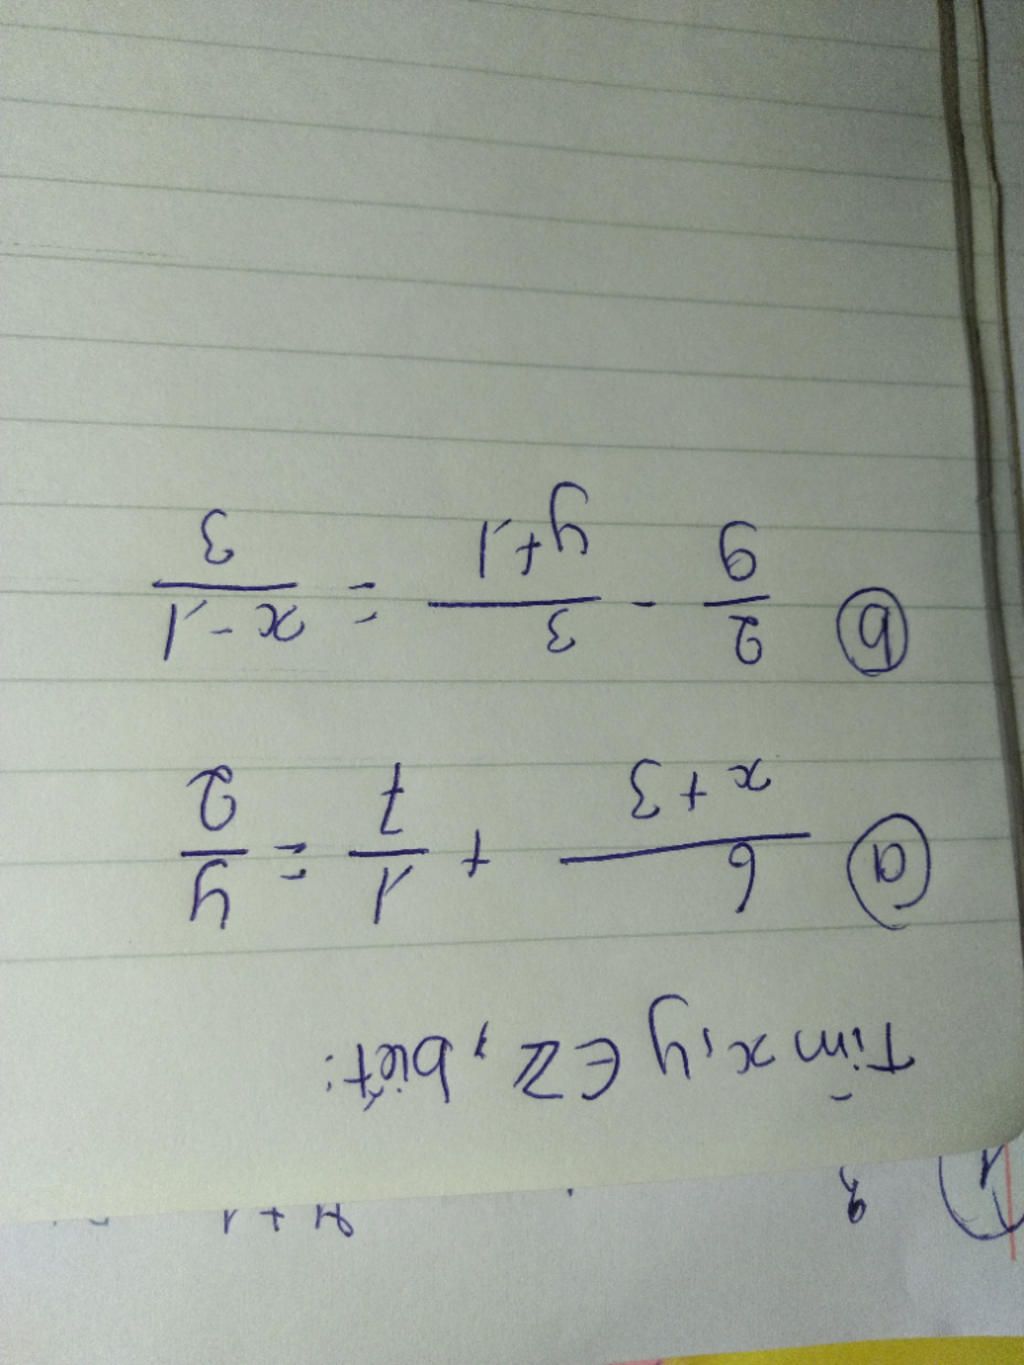 Tìm x, y ∈ Z, biết:
a) 6/(x+3) + 1/7 = y/2
b) 2/6 - 3/(y+1) = (x-1)/3